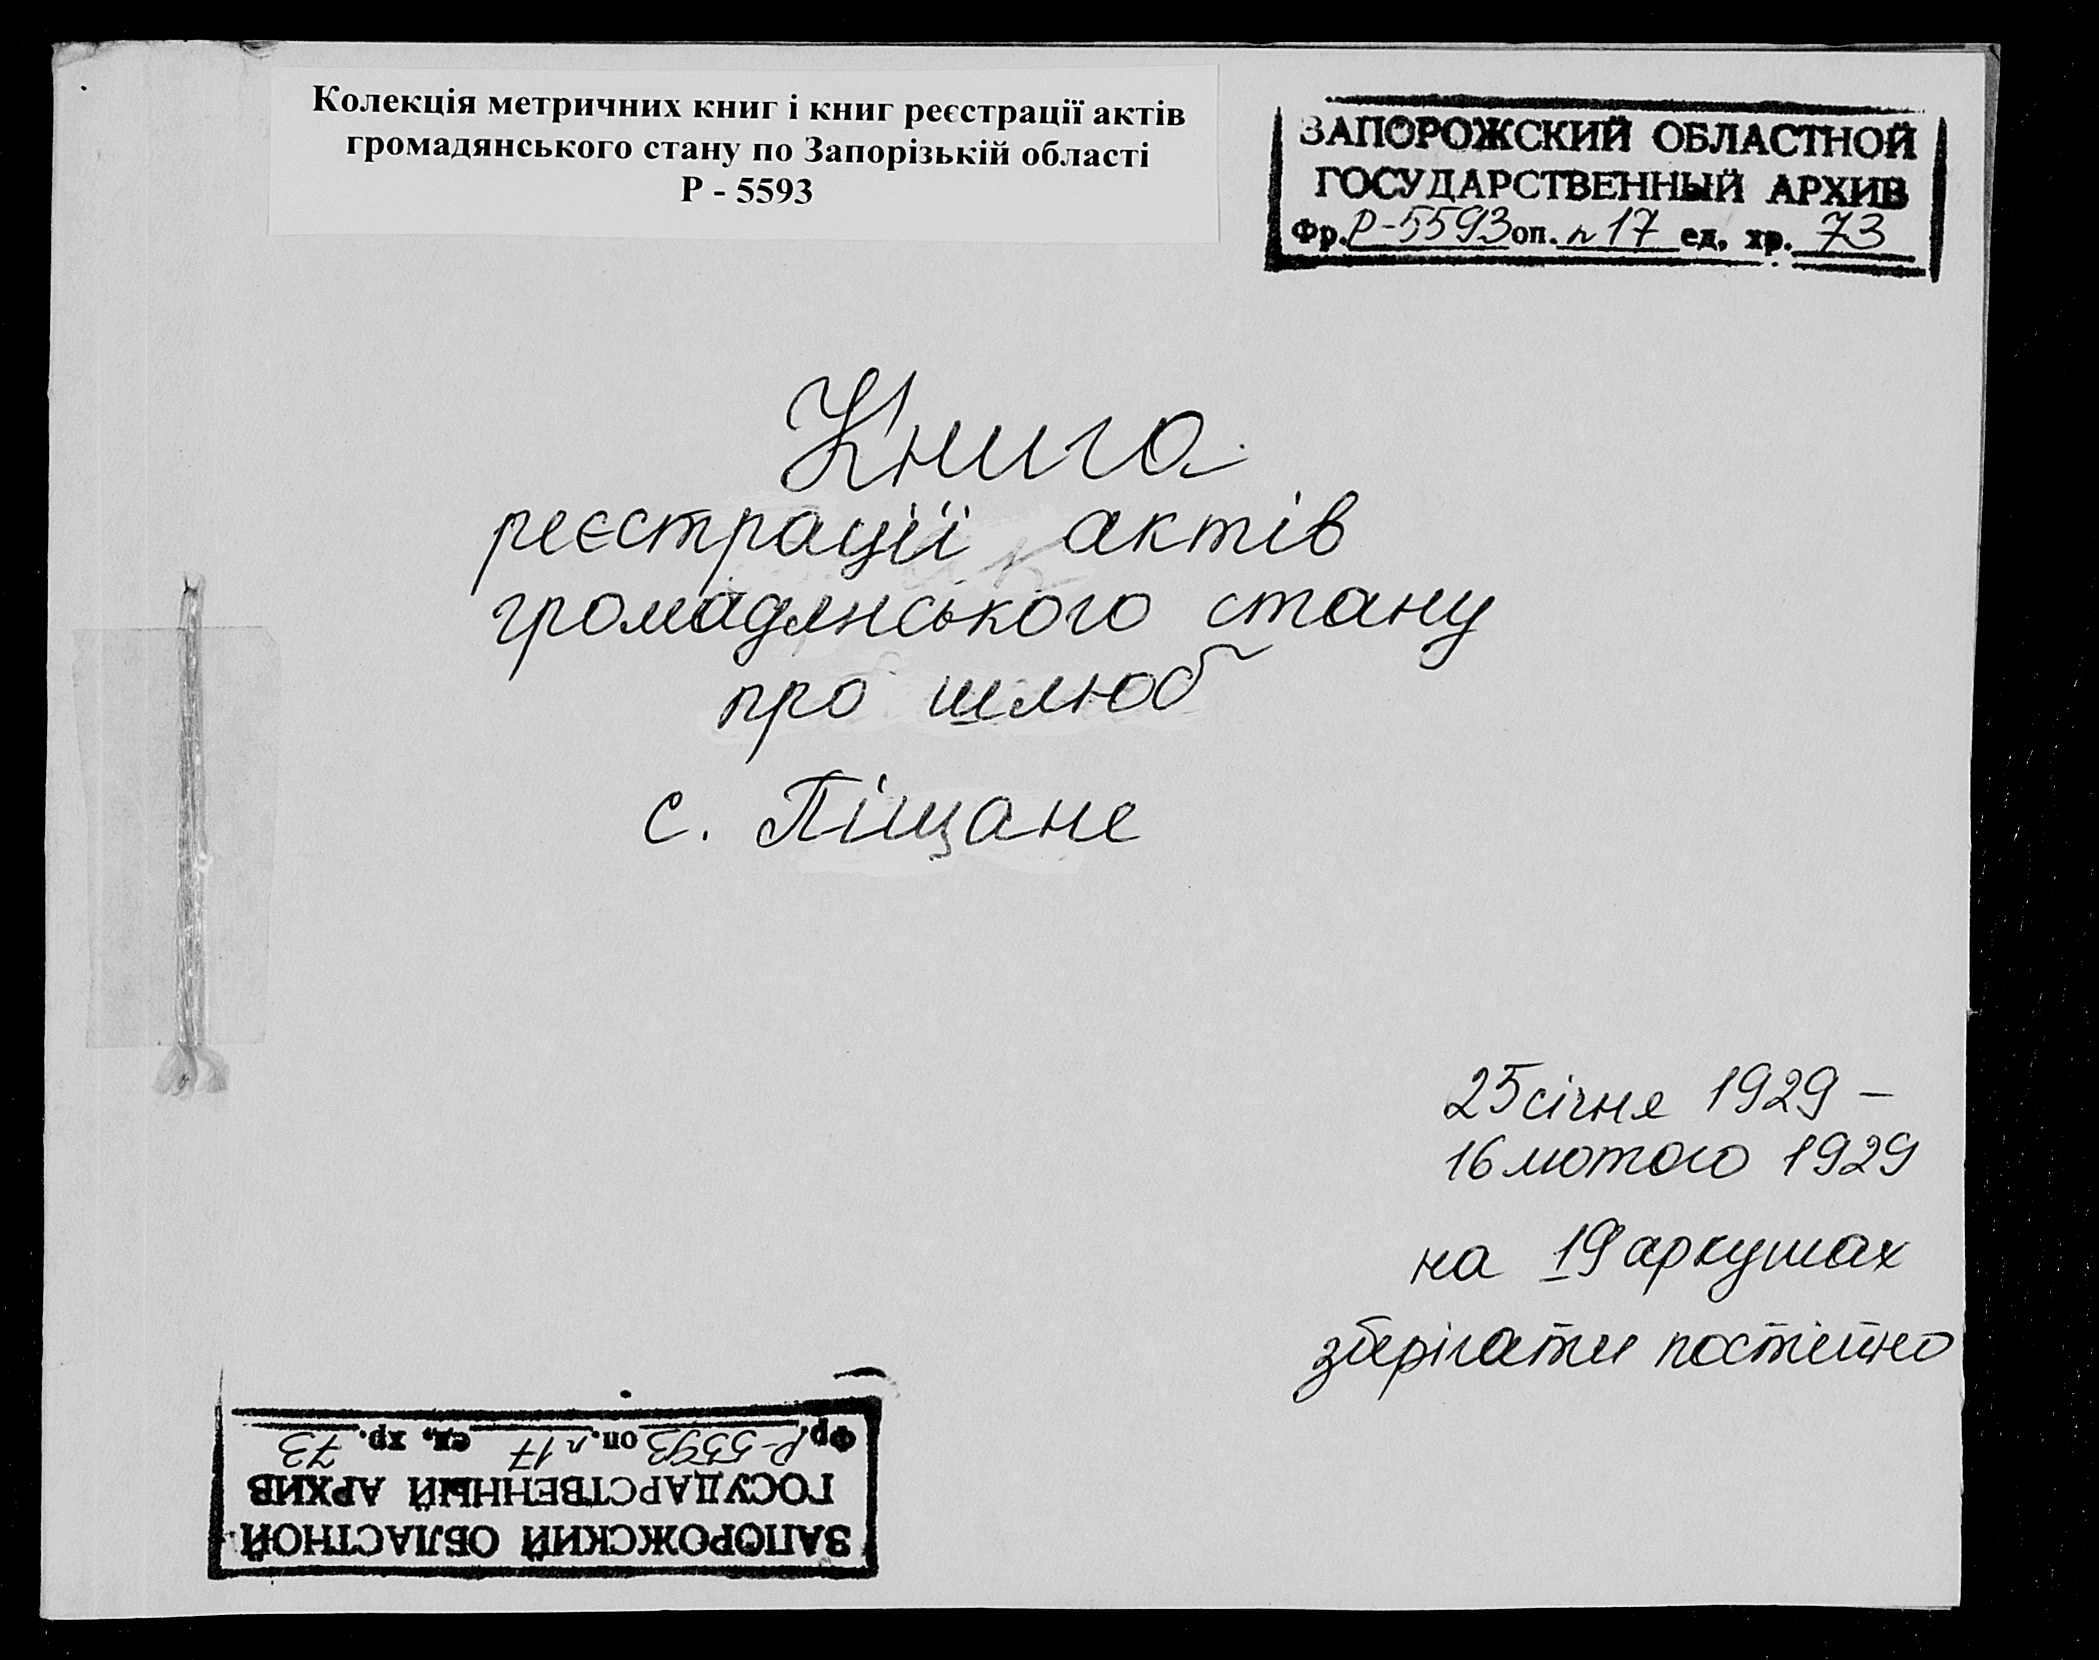 Колекція метричних книг і книг реєстрації актів
громадянського стану по Запорізькій області
Р - 5593
ЗАПОРОЖСКИЙ ОБЛАСТНОЙ
ГОСУДАРСТВЕННЫЙ АРХИВ
Фр. Р-5593 оп. п 17 ед. хр. 73
Книга
реєстрації актів
громадянського стану
про шлюб
с. Піщане
25 січня 1929 –
16 лютого 1929
на 19 аркушах
зберігати постійно
ЗАПОРОЖСКИЙ ОБЛАСТНОЙ
ГОСУДАРСТВЕННЫЙ АРХИВ
Фр. Р-5593 оп. п 17 ед. хр. 73